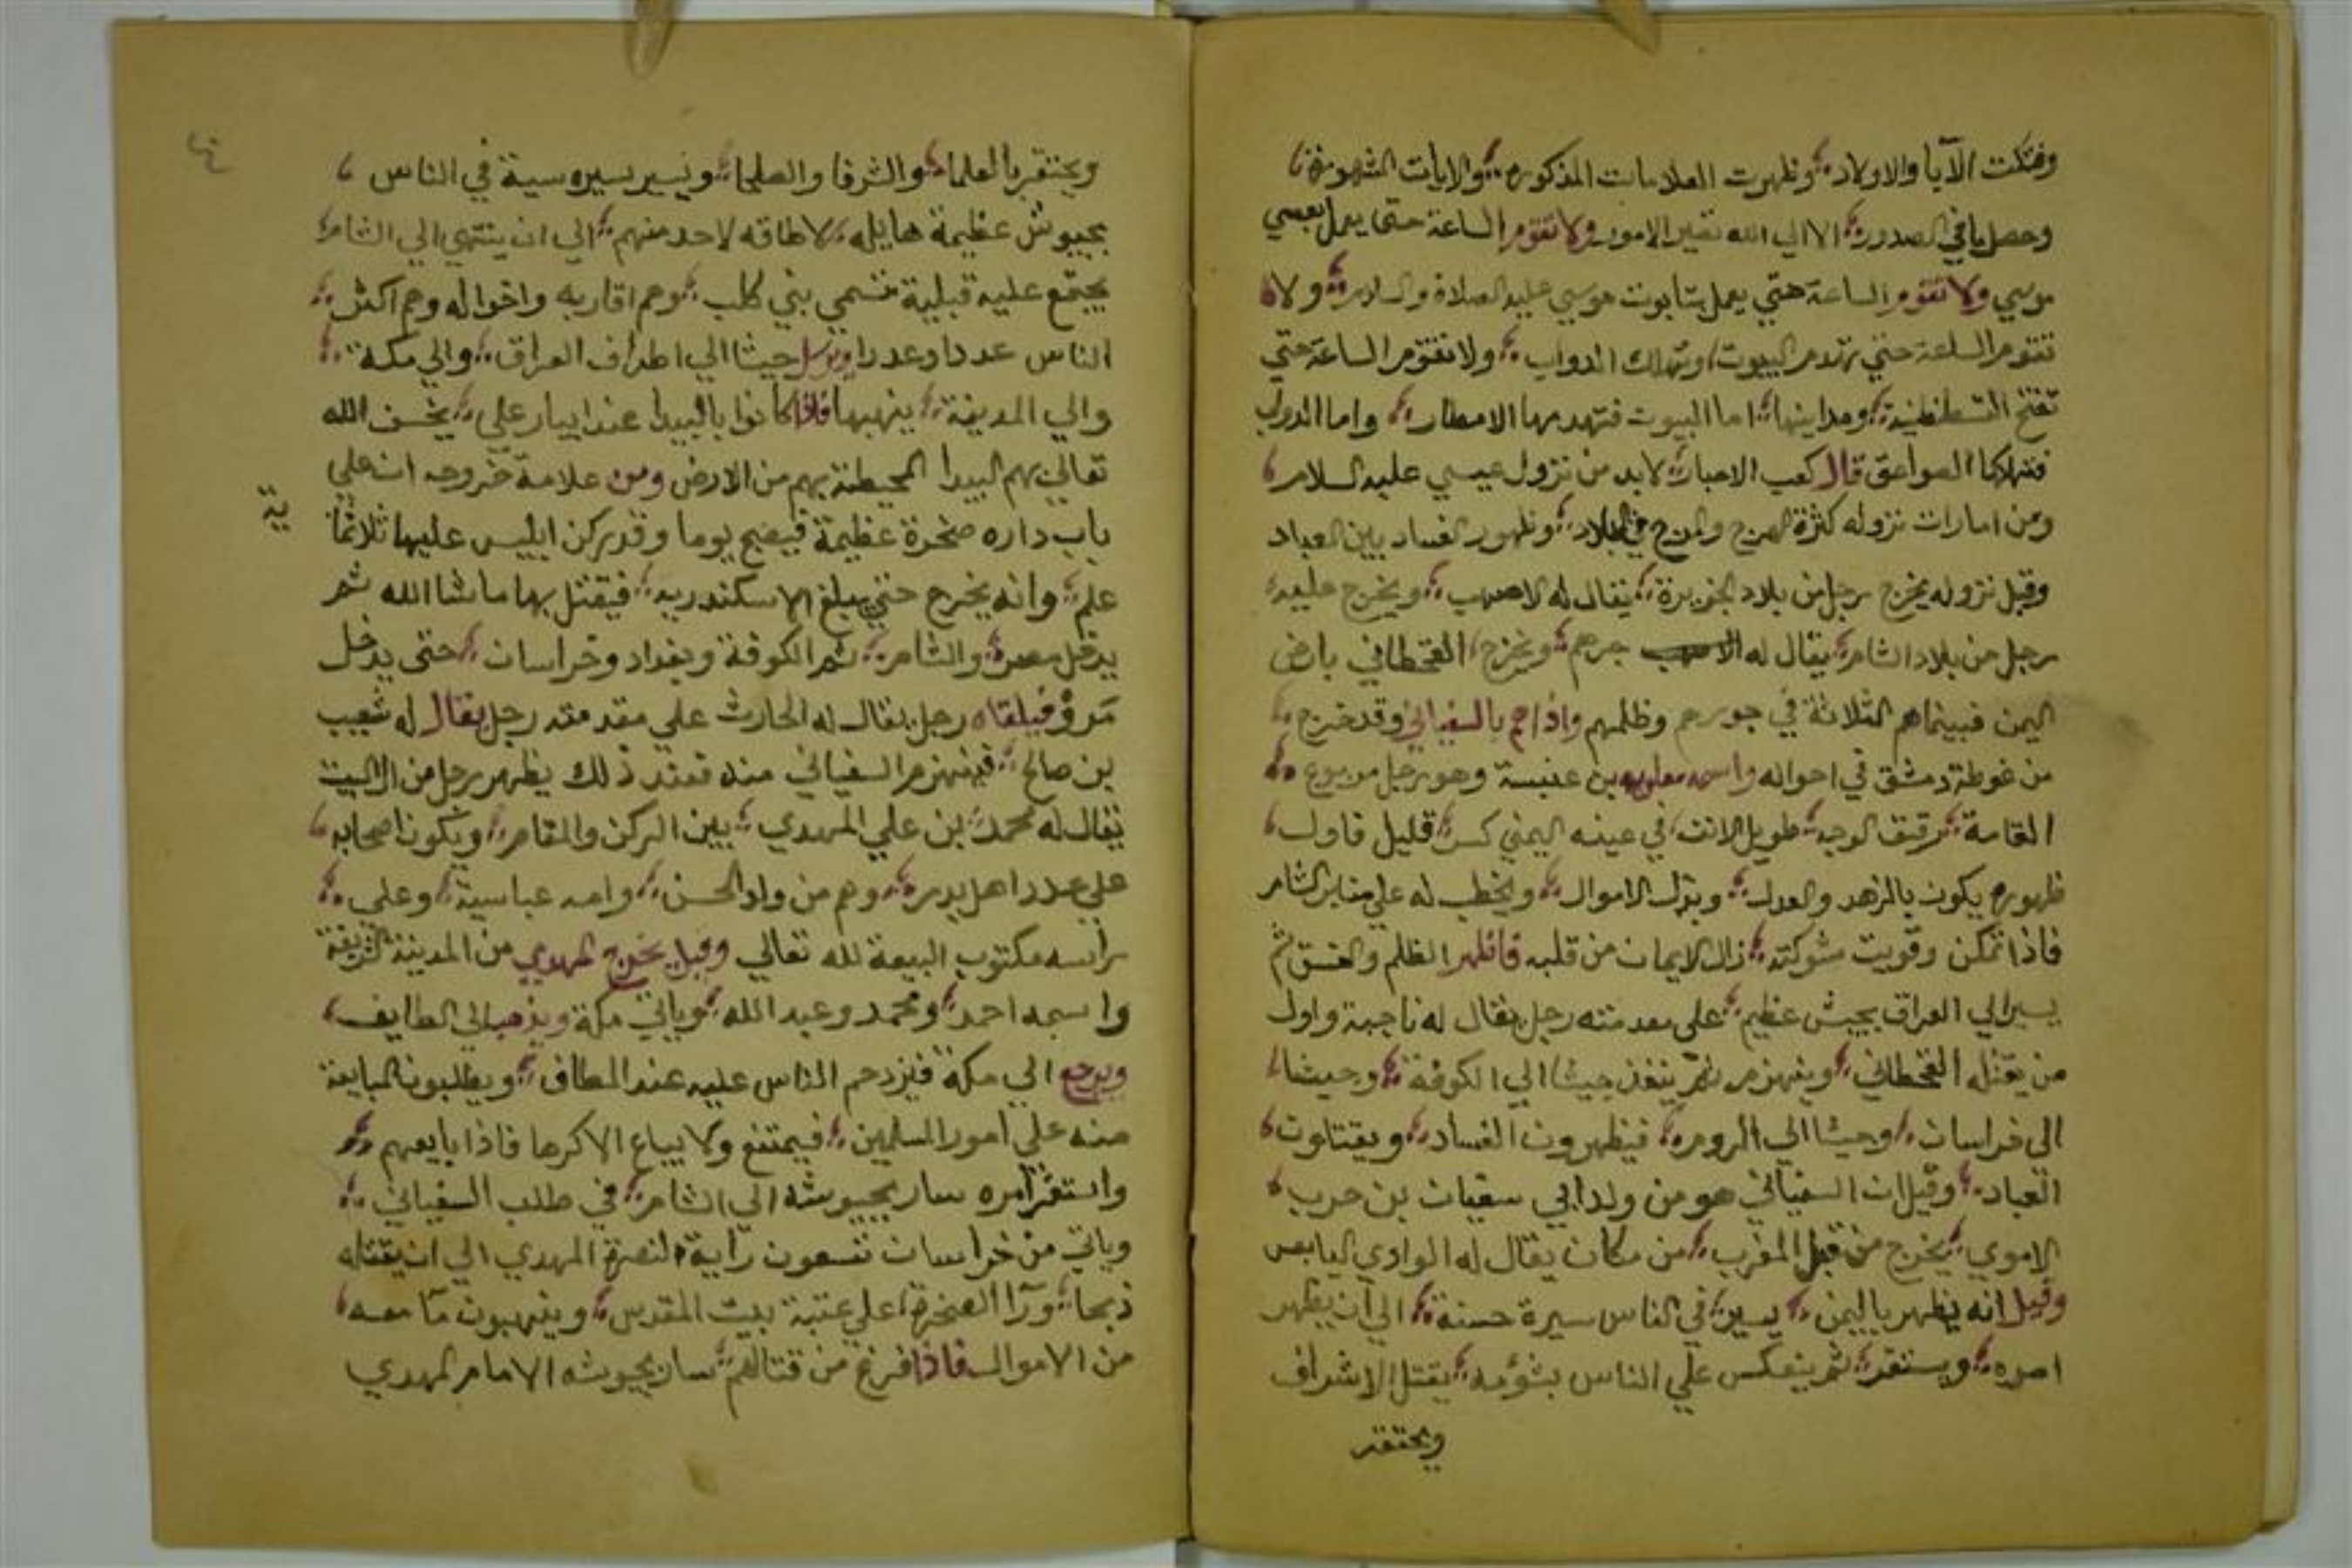 وفتكت الآبا والاولاد وظهرت العلامات المذكوره والايات المشهورة
وحصل ما في الصدور الا الي الله تصير الامور ولا تقوم الساعة حتى يعمل بعصي
موسي ولا تقوم الساعة حتي يعمل بتابوت موسي عليه الصلاة والسلام ولا
تقوم الساعة حتي تهدم البيوت وتهلك الدواب ولا تقوم الساعة حتي
تفتح القسطنطينية ومداينها اما البيوت فتهدمها الامطار واما الدواب
فتهلكها الصواعق قال كعب الاحبار لا بد من نزول عيسي عليه السلام
ومن امارات نزوله كثرة الهرج والمرج في البلاد وظهور الفساد بين العباد
وقبل نزوله يخرج رجل من بلاد الجزيرة يقال له الاصهب ويخرج عليه
رجل من بلاد الشام يقال له جرهم ويخرج القحطاني بارض
اليمن فبينما هم الثلاثة في جورهم وظلمهم واذا هم بالسفياني وقد خرج
من غوطة دمشق في احواله واسمه معاويه بن عنبسة وهو رجل مربوع
القامة رقيق الوجه طويل الانف في عينه اليمني كسر قليل فاول
ظهوره يكون بالزهد والعدل وبذل الاموال ويخطب له علي منابر الشام
فاذا تمكن وقويت شوكته زال الايمان من قلبه فاظهر الظلم والفسق ثم
يسير الي العراق بجيش عظيم على مقدمته رجل يقال له ناجبة واول
من يقتله القحطاني وينهزم ثم ينفذ جيشا الي الكوفة وجيشا
الى خراسان وجيشا الي الروم فيظهرون الفساد ويقتلون
العباد وقيل ان السفياني هو من ولد ابي سفيان بن حرب
الاموي يخرج من قبل المغرب من مكان يقال له الوادي اليابس
وقيل انه يظهر باليمن يسير في الناس سيرة حسنة الي ان يظهر
امره ويستقر ثم ينعكس علي الناس بشؤمه يقتل الاشراف
ويحتقر
ويحتقر بالعلما والشرفا والصلحا ويسير سيره سية في الناس
بجيوش عظيمة هايله لا طاقه لاحد منهم الي ان ينتهي الي الشام
يجتمع عليه قبلية تسمي بني كلب وهم اقاربه واخواله وهم اكثر
الناس عددا وعددا ويرسل جيشا الي اطراف العراق والي مكة
والي المدينة ينهبها فاذا كانوا بالبيدا عند ابيار علي يخسف الله
تعالي بهم البيدا المحيطة بهم من الارض ومن علامة خروجه ان علي
باب داره صخرة عظيمة فيصبح يوما وقد ركن ابليس عليها ثلاثما
ية
علم وانه يخرج حتي يبلغ الاسكندريه فيقتل بها ما شا الله ثم
يدخل مصر والشام ثم الكوفة وبغداد وخراسان حتى يدخل
مَرو فيلقاه رجل يقال له الحارث علي مقدمته رجل يقال له شعيب
بن صالح فينهزم السفياني منه فعند ذلك يظهر رجل من ال البيت
يقال له محمد بن علي المهدي بين الركن والمقام ويكون اصحابه
علي عدد اهل بدر وهم من ولد الحسن وامه عباسية وعلى
راسه مكتوب البيعة لله تعالي وقيل يخرج المهدي من المدينة الشريفة
واسمه احمد ومحمد وعبد الله وياتي مكة ويذهب الي الطايف
ويرجع الي مكة فيزدحم الناس عليه عند المطاف ويطلبون المبايعة
منه علي امور المسلمين فيمتنع ولا يباع الا كرها فاذا بايعهم
واستقر امره سار بجيوشه الي الشام في طلب السفياني
وياتي من خراسان تسعون راية لنصرة المهدي الي ان يقتله
ذبحا ورآ الصخرة علي عتبة بيت المقدس وينهبون ما معه
من الاموال فاذا فرغ من قتالهم سار بجيوشه الامام المهدي